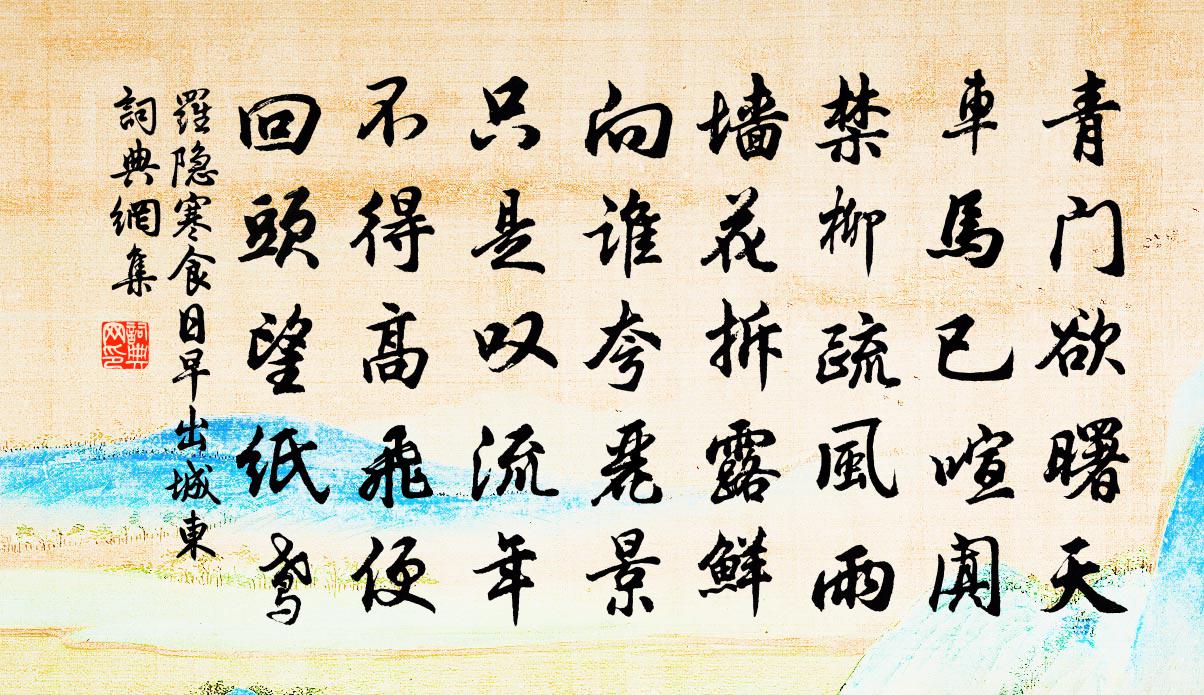 青门欲曙天
車馬已喧闐
禁柳疏風雨
墙花拆露鮮
向谁夸麗景
只是叹流年
不得高飛便
回頭望纸鸢
羅隐寒食日早出城東
詞典網集
詞典网印